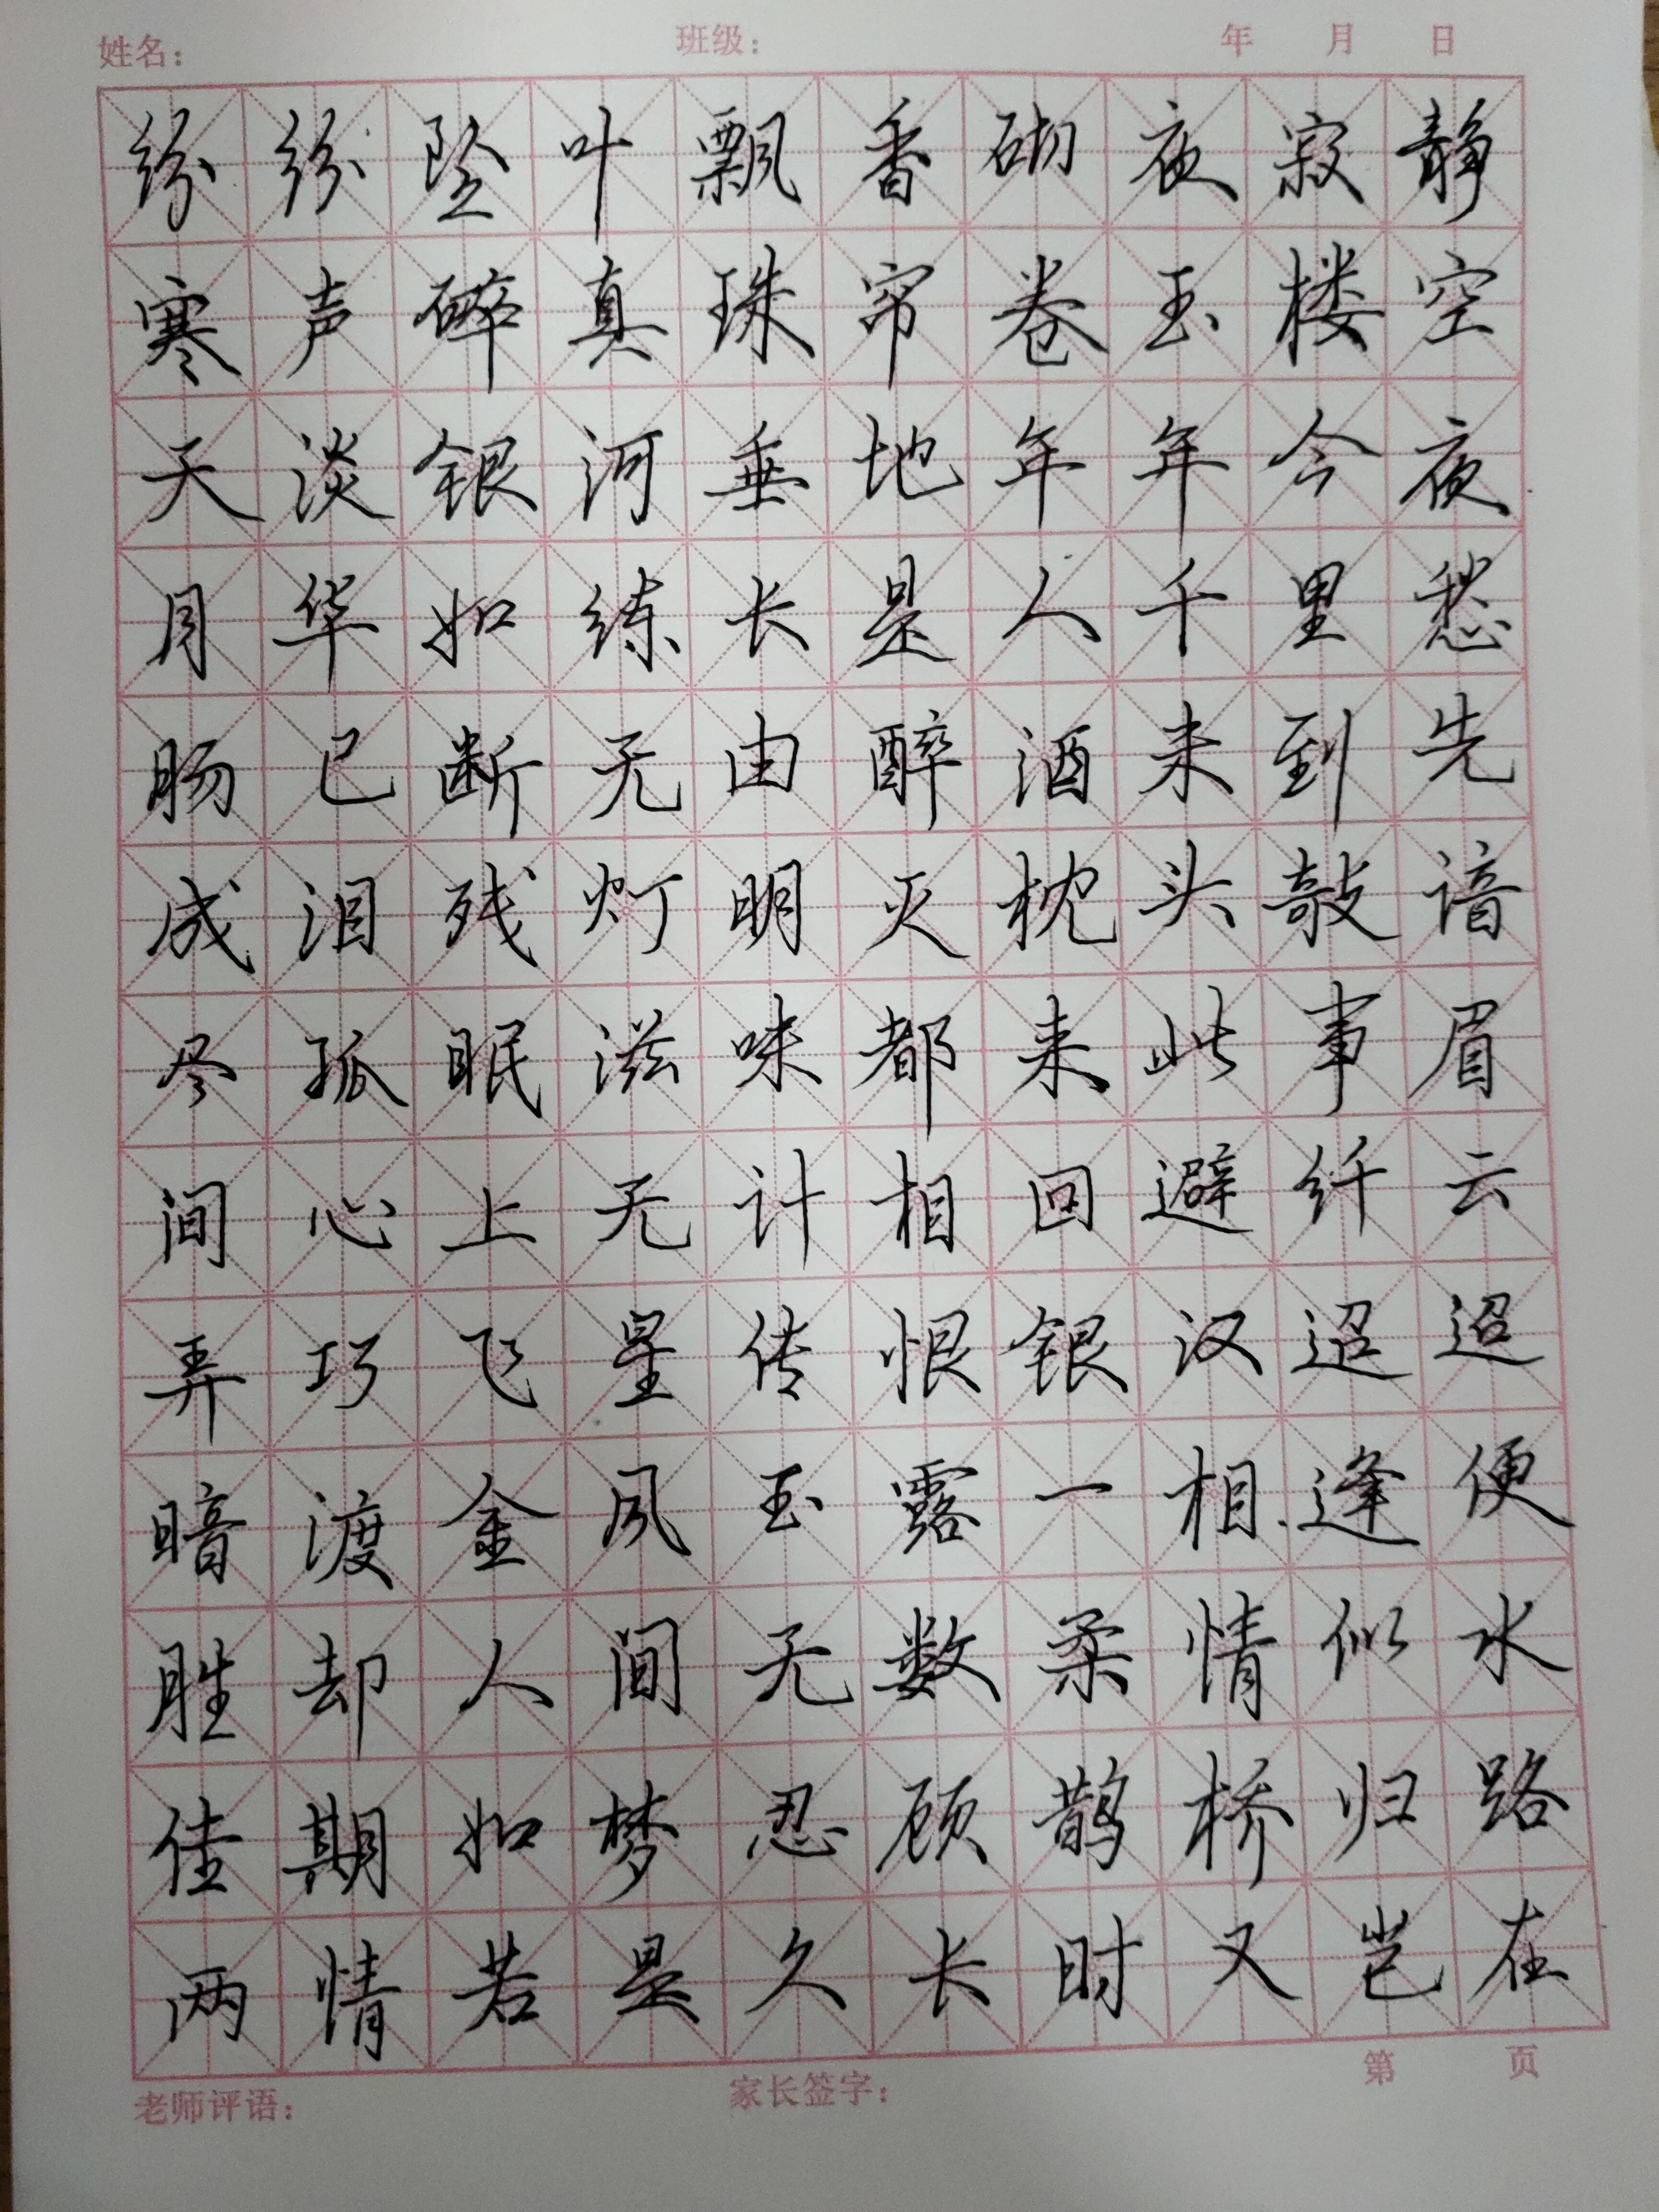 姓名： 班级： 年 月 日
纷纷坠叶飘香砌夜寂静
寒声碎真珠帘卷玉楼空
天淡银河垂地年年今夜
月华如练长是人千里愁
肠已断无由醉酒未到先
成泪残灯明灭枕头敧谙
尽孤眠滋味都来此事眉
间心上无计相回避纤云
弄巧飞星传恨银汉迢迢
暗渡金风玉露一相逢便
胜却人间无数柔情似水
佳期如梦忍顾鹊桥归路
两情若是久长时又岂在
老师评语： 家长签字： 第 页